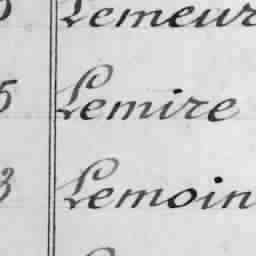 Lemeur
5 Lemire
3 Lemoin